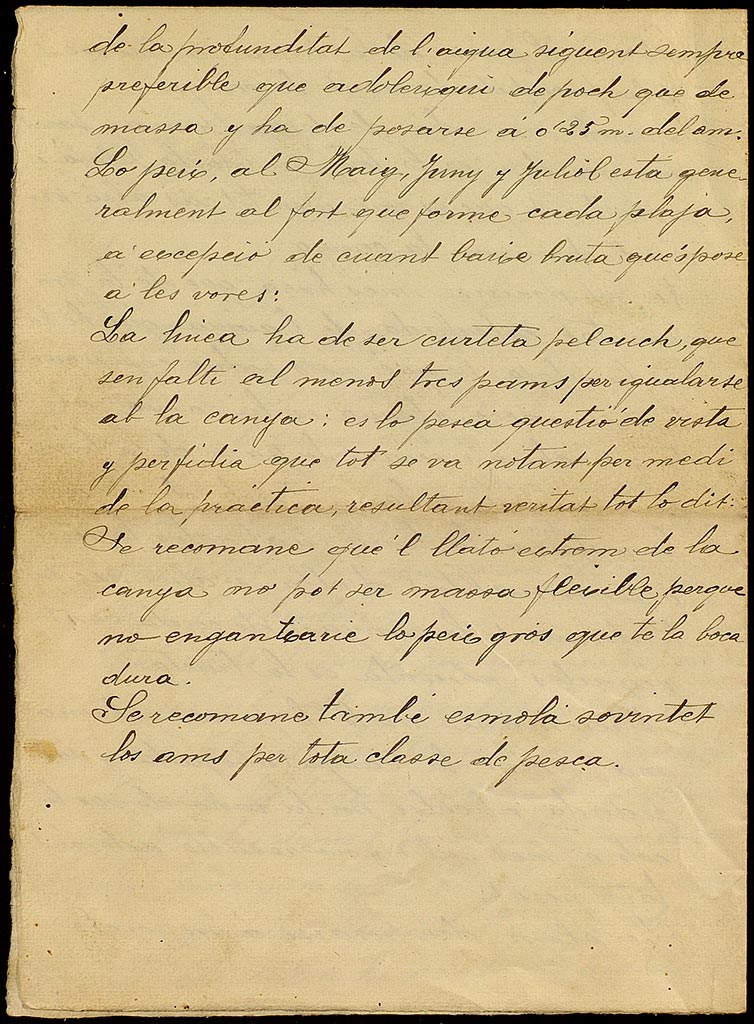 de la profunditat de l'aigua siguent sempre
preferible que adoleixqui de poch que de
massa y ha de posarse á 0'25 m. del am.
Lo peix, al Maig, Juny y Juliol esta gene-
ralment al fort que forme cada plaja,
á excepció de cuant baixe bruta qu'es pose
á les vores:
La linea ha de ser curteta pel cuch, que
sen falti al menos tres pams per igualarse
ab la canya: es lo pescá questió de vista
y perfidia que tot se va notant per medi
de la práctica, resultant veritat tot lo dit:
Se recomane qué'l llató extrem de la
canya no pot ser massa flexible perque
no enganxarie lo peix gros que té la boca
dura.
Se recomane també esmolá sovintet
los ams per tota classe de pesca.